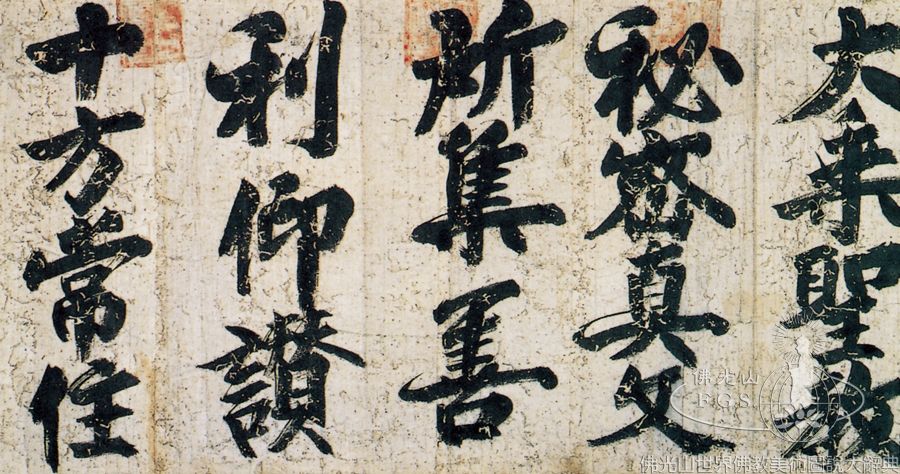 大乘聖教
秘密真文
所集善
利仰讃
十方常住
佛光山
F.G.S.
佛光山世界佛教美術圖說大辭典